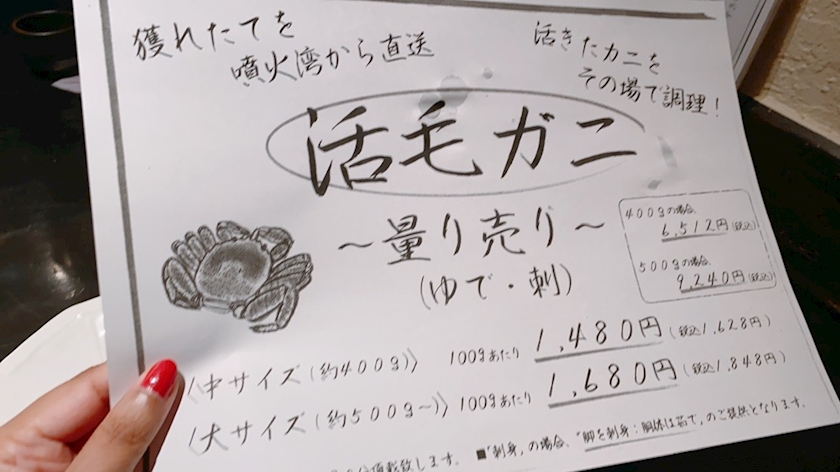 獲れたてを
噴火湾から直送
活きたカニを
その場で調理!
活毛ガニ
~量り売り~
(ゆで・刺)
400gの場合
6,512円(税込)
500gの場合
9,240円(税込)
〈中サイズ(約400g)〉 100gあたり 1,480円 (税込1,628円)
〈大サイズ(約500g~)〉 100gあたり 1,680円 (税込1,848円)
頂戴致します。 ■「刺身」の場合、"脚を刺身:胴体は茹で"のご提供となります。